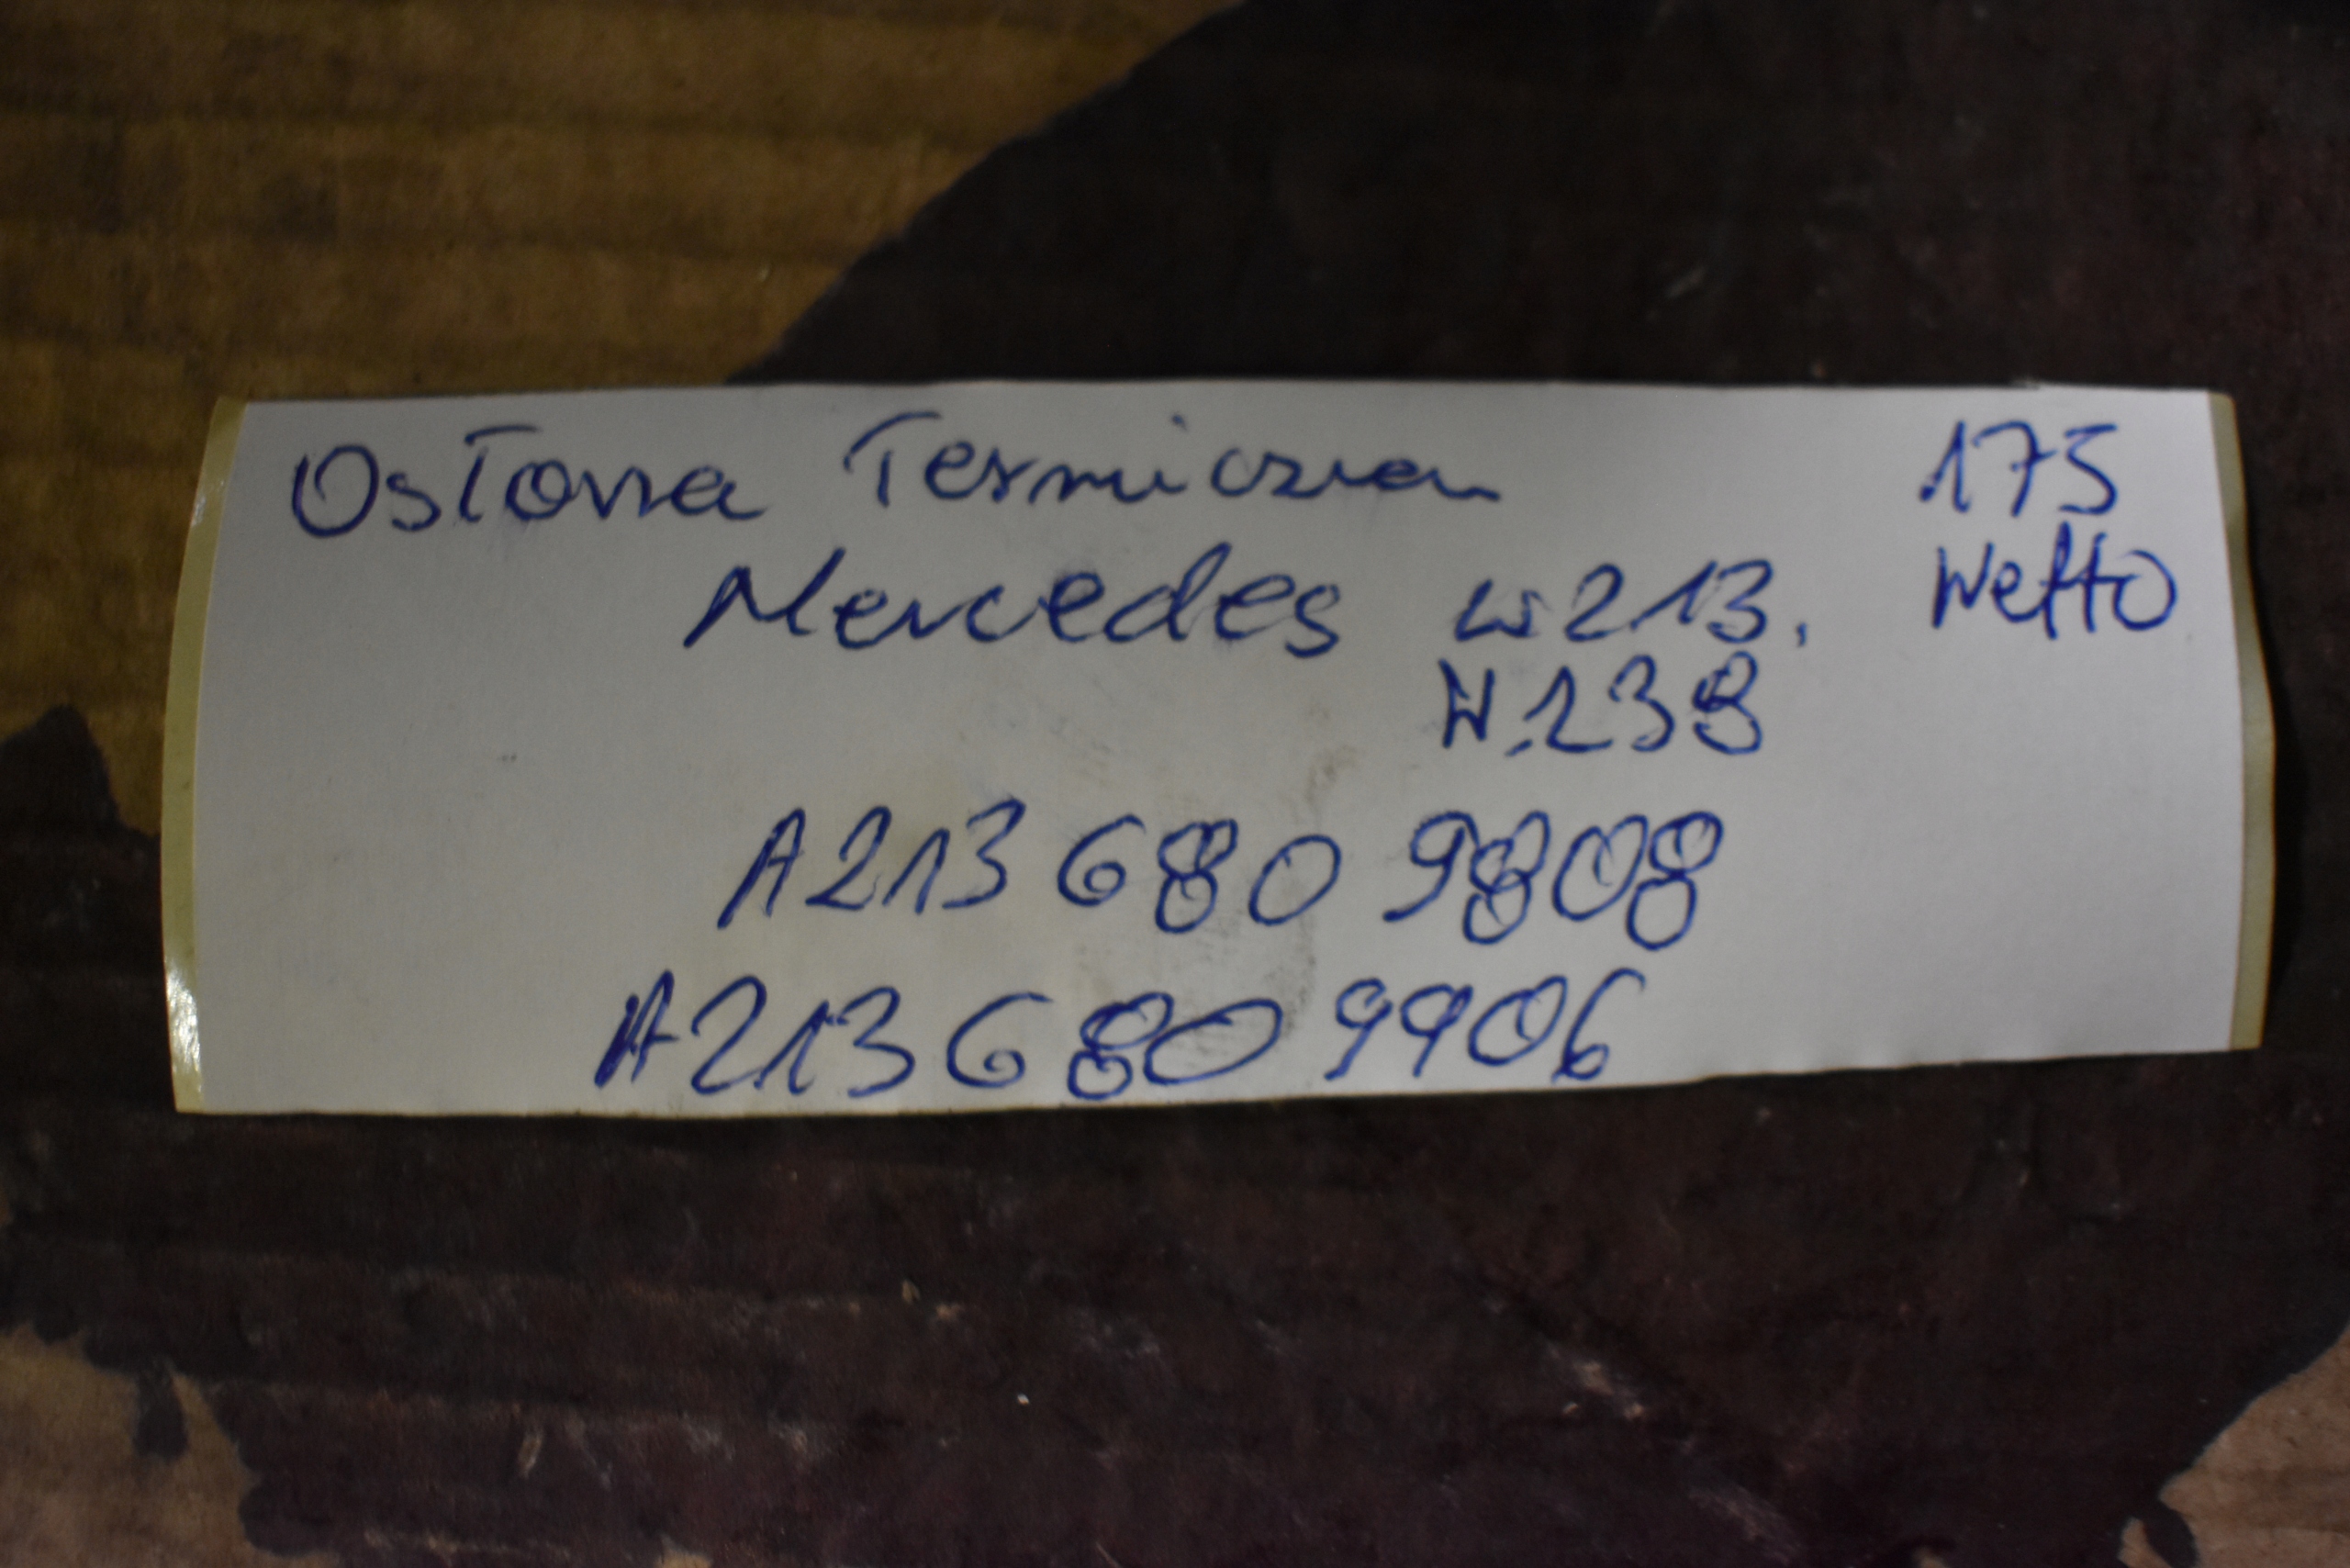 Osłona Termiczna 175
Mercedes w213, Netto
W.238
A213 680 9808
A213 680 9906